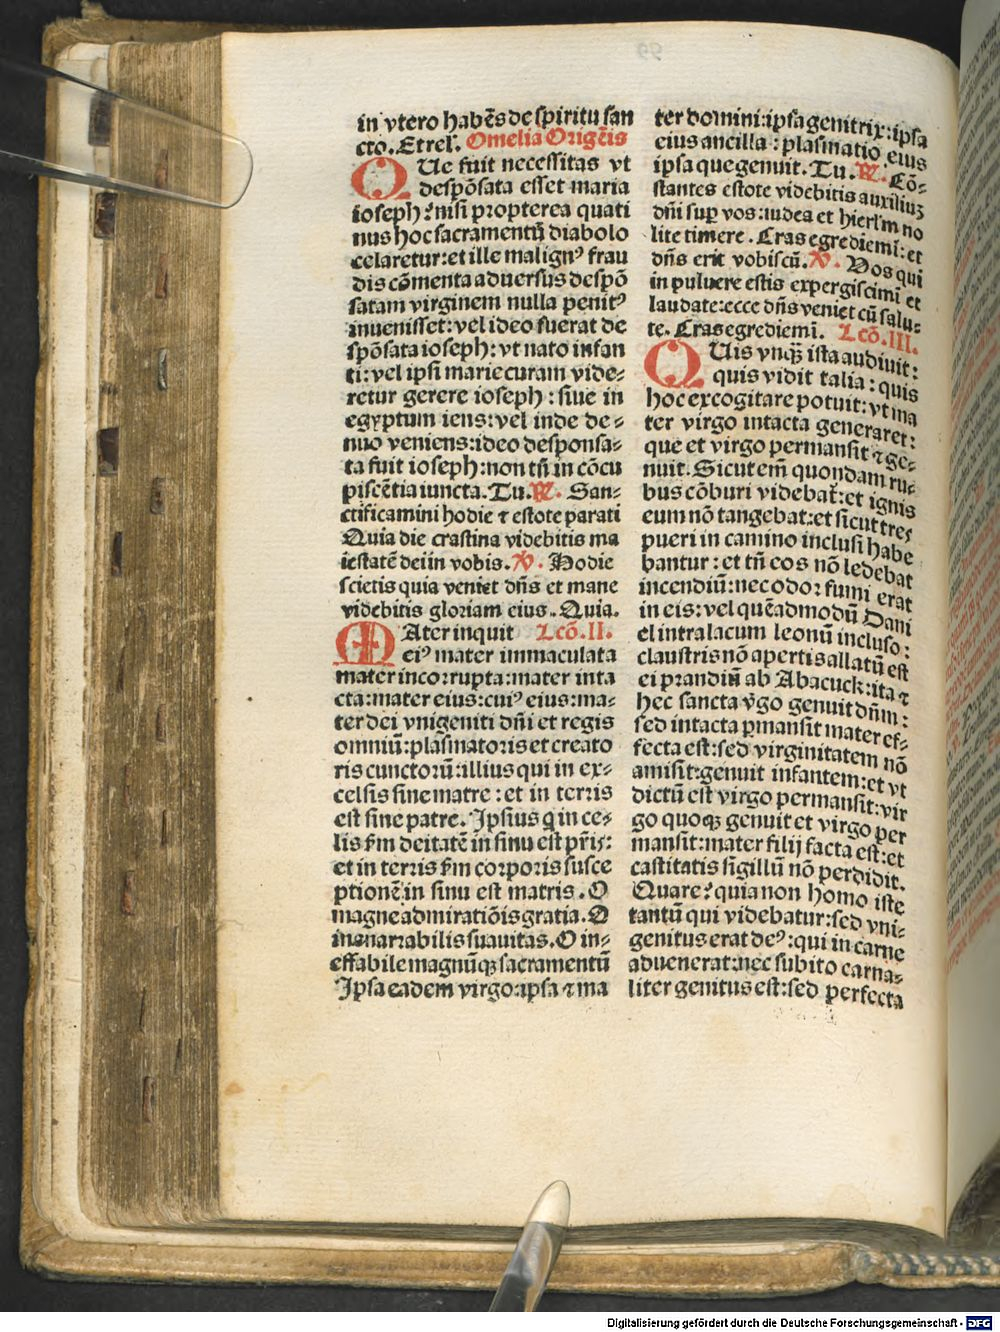 in vtero habēs de spiritu san
cto. Et rel'. Omelia Origēis
QUe fuit necessitas vt
despōsata esset maria
ioseph? nisi propterea quati
nus hoc sacramentū diabolo
celaretur: et ille malignꝰ frau
dis cōmenta aduersus despō
satam virginem nulla penitꝰ
inuenisset: vel ideo fuerat de
spōsata ioseph: vt nato infan
ti: vel ipsi marie curam vide⸗
retur gerere ioseph: siue in
egyptum iens: vel inde de⸗
nuo veniens: ideo desponsa⸗
ta fuit ioseph: non tn̄ in cōcu
piscētia iuncta. Tu. ℟. San⸗
ctificamini hodie ⁊ estote parati
Quia die crastina videbitis ma
iestatē dei in vobis. ℣. Hodie
scietis quia veniet dn̄s et mane
videbitis gloriam eius. Quia.
MAter inquit Lcō. II.
eiꝰ mater immaculata
mater incorrupta: mater inta
cta: mater eius: cuiꝰ eius: ma⸗
ter dei vnigeniti dn̄i et regis
omniū: plasmatoris et creato
ris cunctorū: illius qui in ex⸗
celsis sine matre: et in terris
est sine patre. Ipsius q̄ in ce⸗
lis ẜm deitatē in sinu est pr̄is:
et in terris ẜm corporis susce
ptionē: in sinu est matris. O
magne admiratiōis gratia. O
inenarrabilis suauitas. O in⸗
effabile magnūqꝫ sacramentū
Ipsa eadem virgo: ipsa ⁊ ma
ter domini: ipsa genitrix: ipsa
eius ancilla: plasmatio eius
ipsa que genuit. Tu. ℟. Cō⸗
stantes estote videbitis auxiliuꝫ
dn̄i sup vos: iudea et hierl'm no
lite timere. Cras egrediemī: et
dn̄s erit vobiscū. ℣. Vos qui
in puluere estis expergiscimī et
laudate: ecce dn̄s veniet cū salu⸗
te. Cras egrediemī. Lcō. III.
QUis vnqꝫ ista audiuit:
quis vidit talia: quis
hoc excogitare potuit: vt ma
ter virgo intacta generaret:
que et virgo permansit ⁊ ge⸗
nuit. Sicut em̄ quondam ru⸗
bus cōburi videbat̄: et ignis
eum nō tangebat: et sicut tres
pueri in camino inclusi habe
bantur: et tn̄ eos nō ledebat
incendiū: nec odor fumi erat
in eis: vel quēadmodū Dani
el intra lacum leonū incluso:
claustris nō apertis allatū est
ei prandiū ab Abacuck: ita ⁊
hec sancta v̄go genuit dn̄m:
sed intacta ꝑmansit mater ef⸗
fecta est: sed virginitatem nō
amisit: genuit infantem: et vt
dictū est virgo permansit: vir
go quoqꝫ genuit et virgo per
mansit: mater filij facta est: et
castitatis sigillū nō perdidit.
Quare? quia non homo iste
tantū qui videbatur: sed vni⸗
genitus erat deꝰ: qui in carne
aduenerat: nec subito carna⸗
liter genitus est: sed perfecta
Digitalisierung gefördert durch die Deutsche Forschungsgemeinschaft - DFG